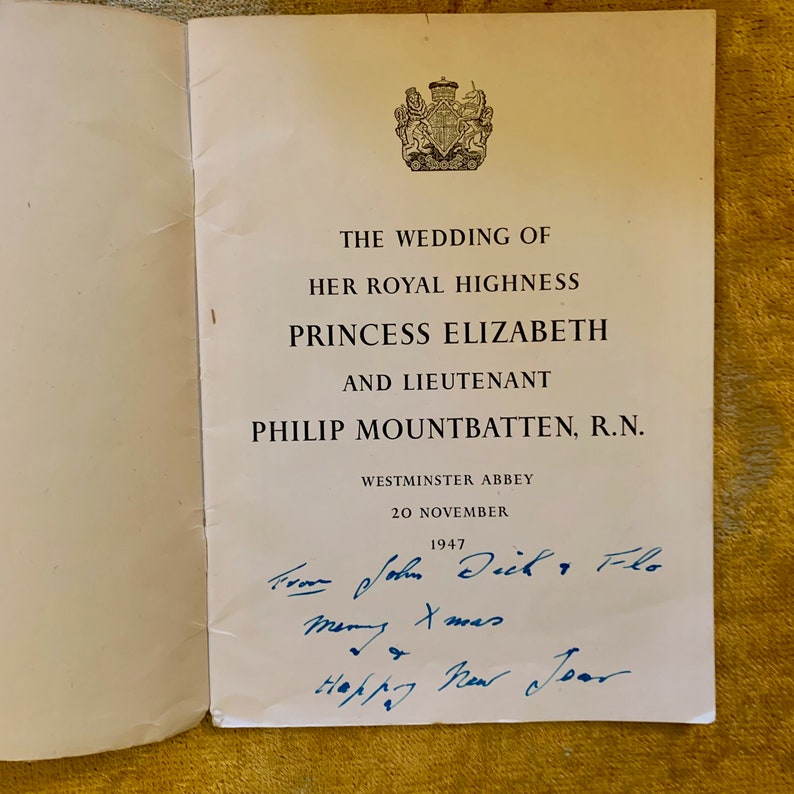 THE WEDDING OF
HER ROYAL HIGHNESS
PRINCESS ELIZABETH
AND LIEUTENANT
PHILIP MOUNTBATTEN, R.N.
WESTMINSTER ABBEY
20 NOVEMBER
1947
From John Dick & Flo
Merry Xmas
&
Happy New Year